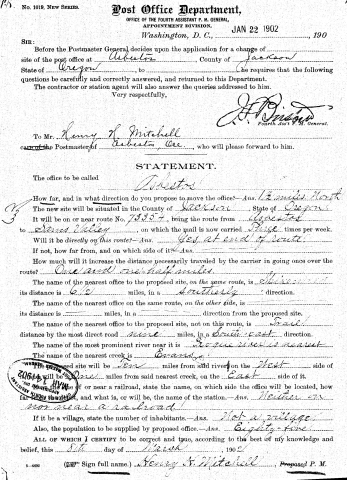 No. 1019, New Series.
Post Office Department,
OFFICE OF THE FOURTH ASSISTANT P. M. GENERAL,
APPOINTMENT DIVISION,
Washington, D. C., JAN 22 1902, 190
SIR:
Before the Postmaster General decides upon the application for a change of
site of the post office at Asbestos, County of Jackson
State of Oregon, to, he requires that the following
questions be carefully and correctly answered, and returned to this Department.
The contractor or station agent will also answer the queries addressed to him.
Very respectfully,
Fourth Ass't P. M. General.
To Mr. Henry H. Mitchell
Postmaster of Asbestos, Ore, who will please forward to him.
STATEMENT.
The office to be called
Asbestos
How far, and in what direction do you propose to move the office? -Ans. 1½ miles North
The new site will be situated in the County of Jackson, State of Oregon
It will be on or near route No. 73354, being the route from Asbestos
to Sams Valley, on which the mail is now carried Three times per week.
Will it be directly on this route? -Ans. Yes at end of route.
If not, how far from, and on which side of it -Ans.
How much will it increase the distance necessarily traveled by the carrier in going once over the
route? One and one half miles
The name of the nearest office to the proposed site, on the same route, is
its distance is miles, in a southerly direction.
The name of the nearest office on the same route, on the other side, is
its distance is miles, in a direction, from the proposed site.
The name of the nearest office to the proposed site, not on this route, is Trail
distance by the most direct road Nine miles, in a South-east direction.
The name of the most prominent river near it is Rogue river is nearest
The name of the nearest creek is Evans
The site will be Ten miles from said river, on the West side of
it will be miles from said nearest creek, on the East side of it.
or near a railroad, state the name, on which side the office will be located, how
and what is, or will be, the name of the station. -Ans. Neither on
nor near a railroad
If it be a village, state the number of inhabitants. -Ans. Not a village
Also, the population to be supplied by proposed office. -Ans. Eighty-five
ALL OF WHICH I CERTIFY to be correct and true, according to the best of my knowledge and
belief, this 8th day of March, 190
Sign full name) Henry H. Mitchell, Proposed P. M.
MAR 14 1902